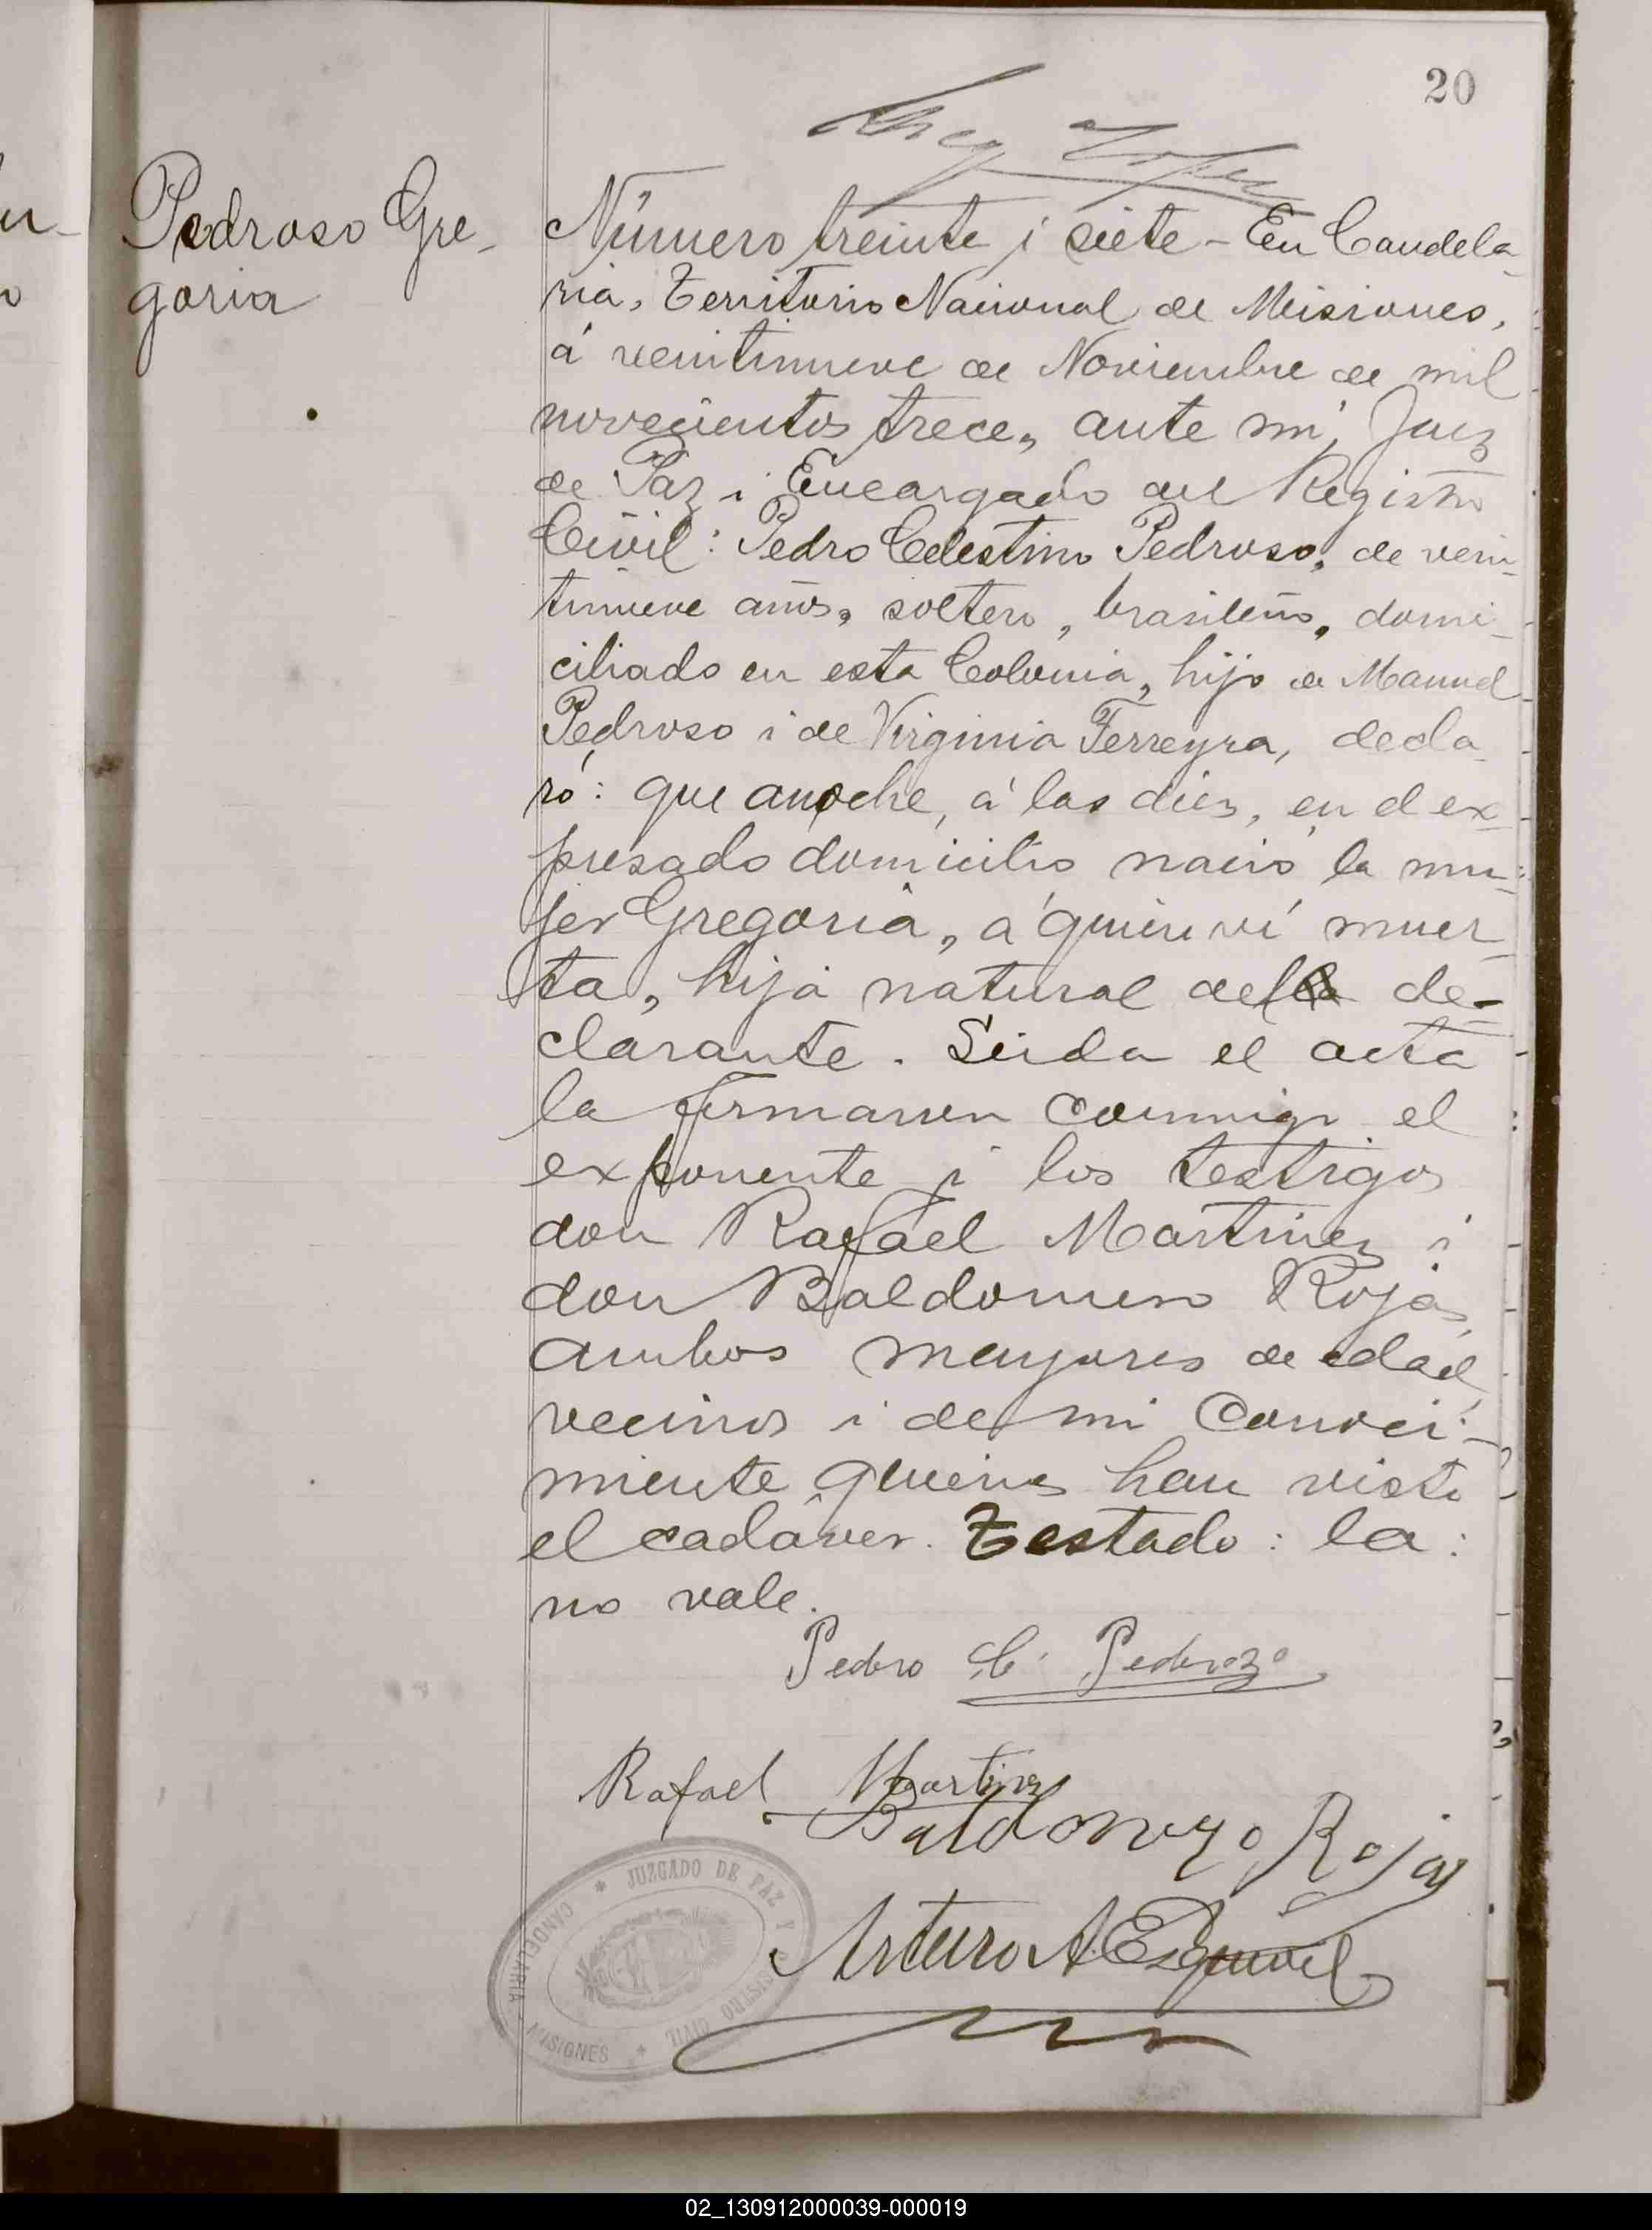 20
Pedroso Gre-
goria
Número treinta i siete - En Candela-
ria, Territorio Nacional de Misiones,
á veintinueve de Noviembre de mil
novecientos trece, ante mí, Juez
de Paz i Encargado del Registro
Civil: Pedro Celestino Pedroso, de vein-
tinueve años, soltero, brasileño, domi-
ciliado en esta Colonia, hijo de Manuel
Pedroso i de Virginia Ferreyra, decla-
ró: que anoche, á las diez, en el ex-
presado domicilio nació la mu-
jer Gregoria, á quien ví muer-
ta, hija natural del la de-
clarante. Leida el acta
la firmaron conmigo el
exponente i los testigos
don Rafael Martinez i
don Baldomero Rojas,
ambos mayores de edad,
vecinos i de mi conoci-
miento quienes han visto
el cadáver. Testado: la:
no vale.
Pedro C. Pedrozo
Rafael Martinez
Baldomero Rojas
Arturo A Esquivel
JUZGADO DE PAZ Y REGISTRO CIVIL
CANDELARIA - MISIONES
02_130912000039-000019